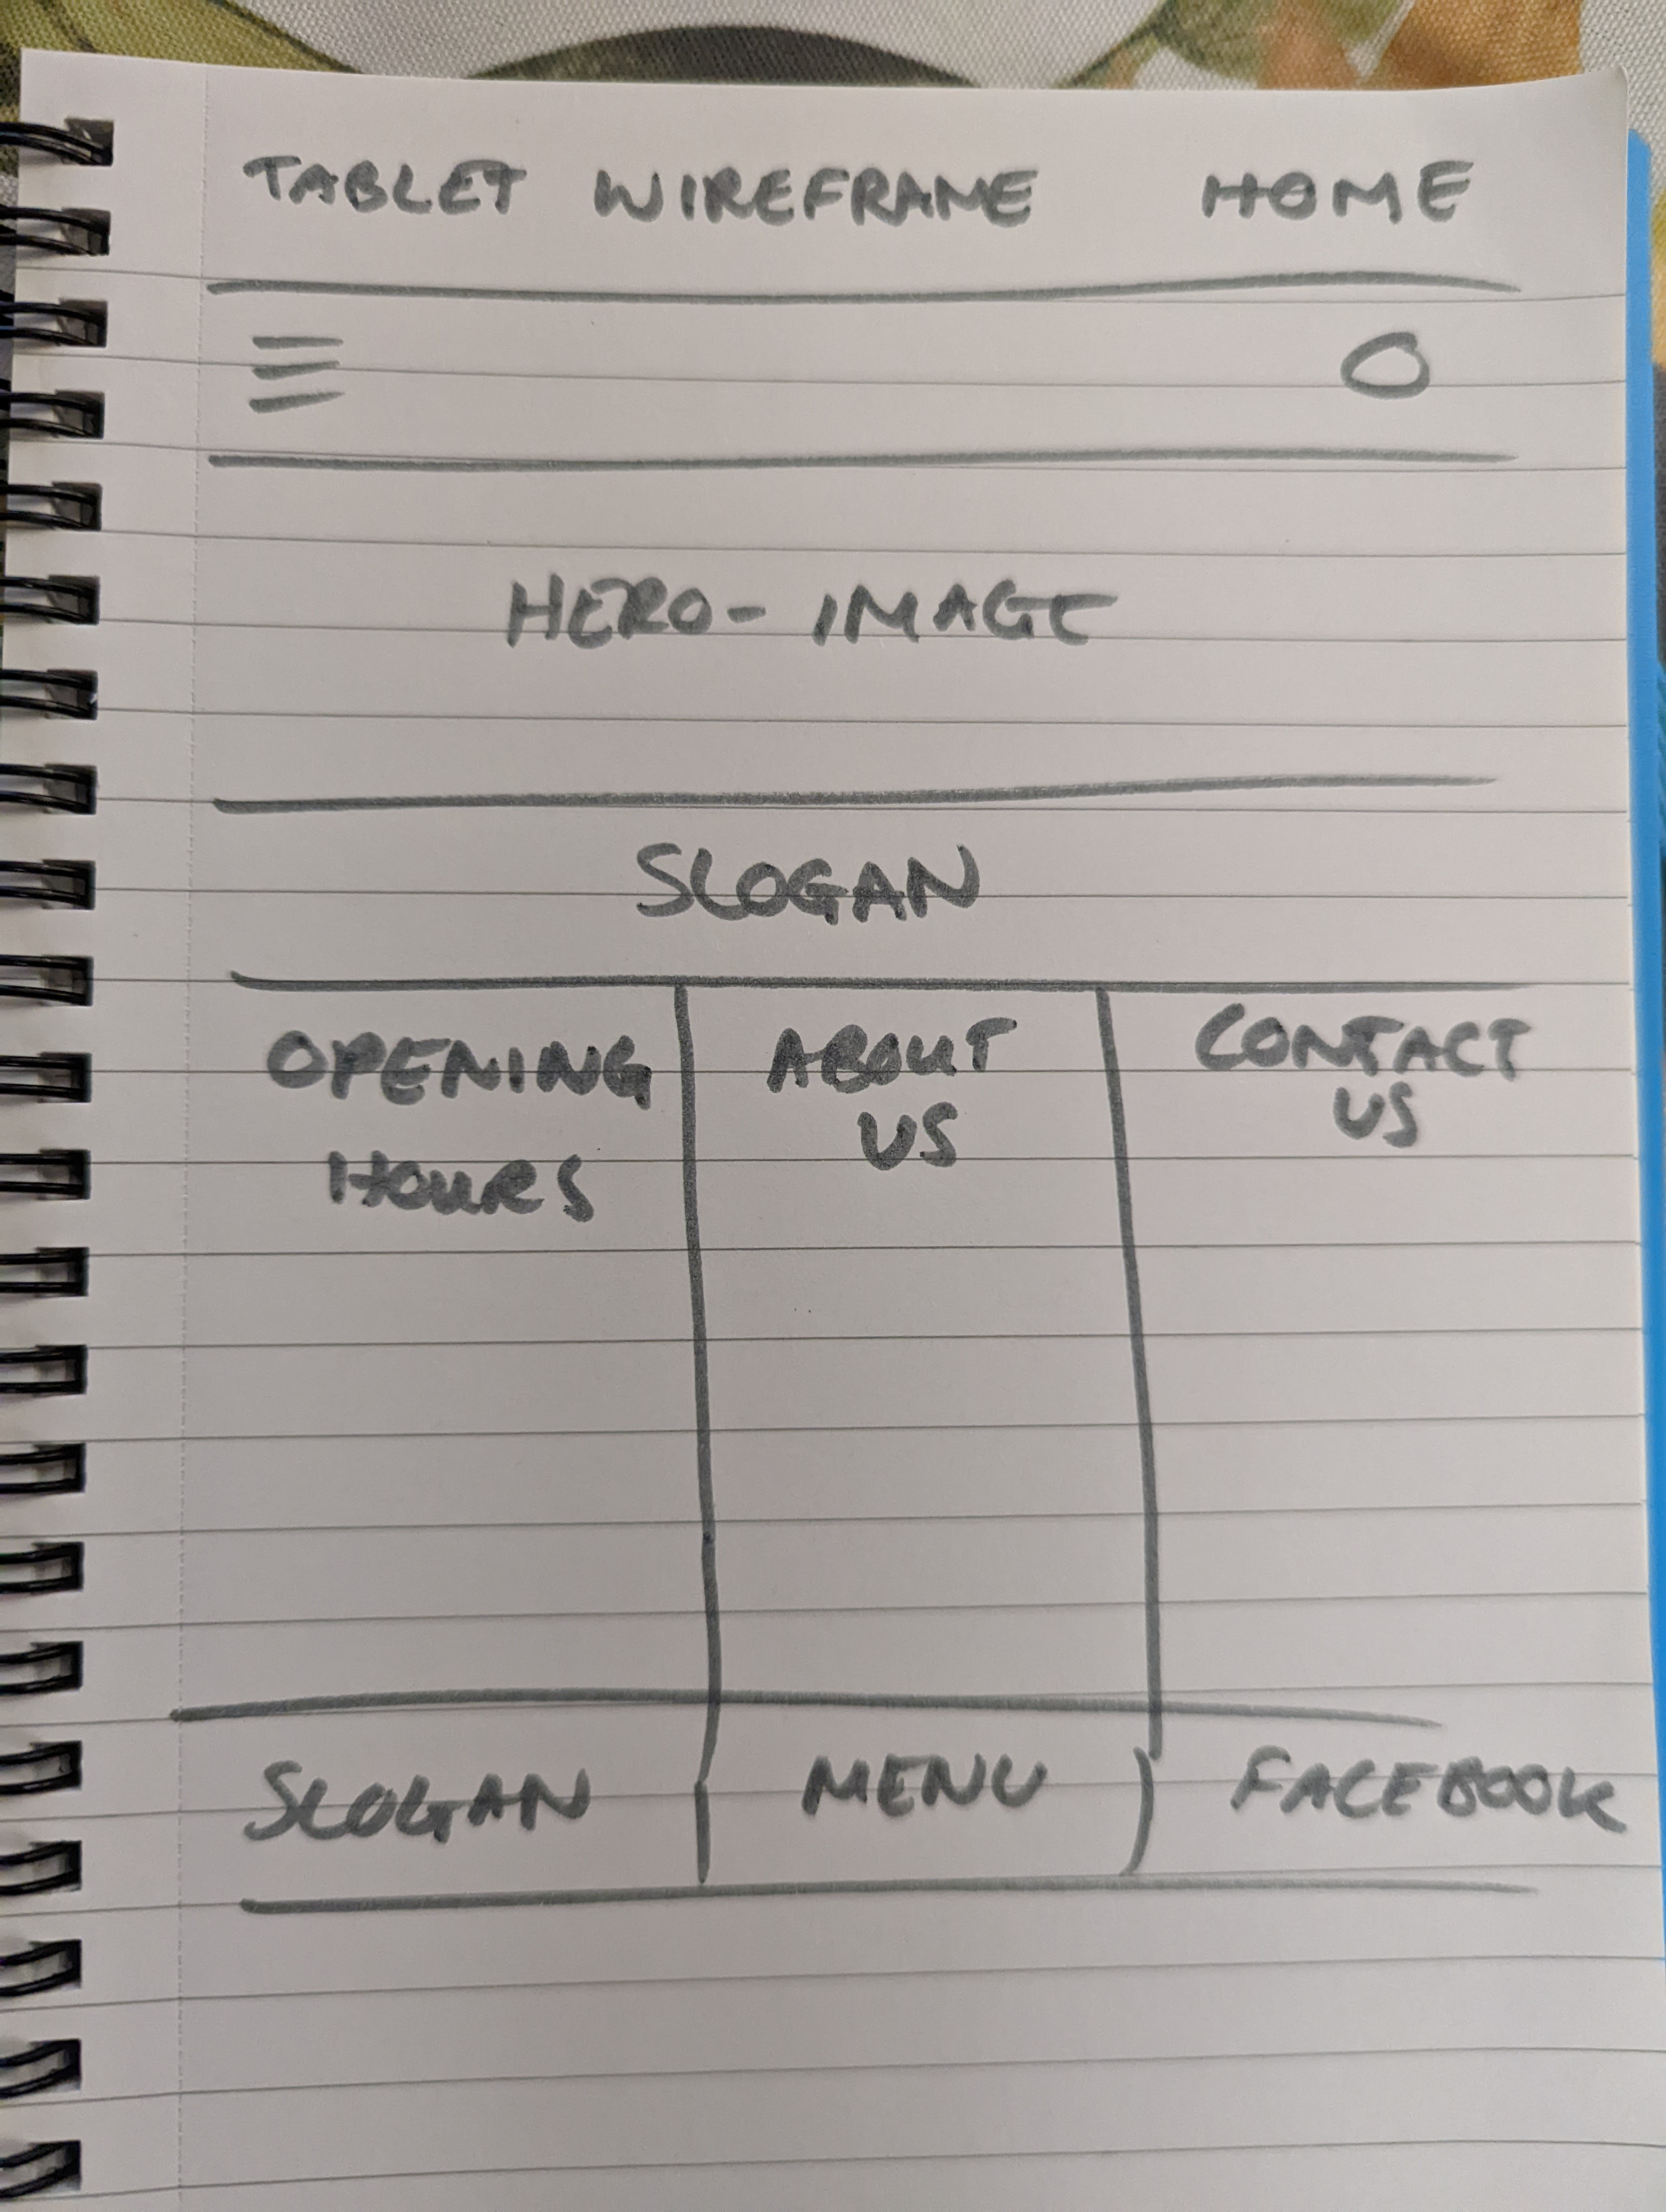 TABLET WIREFRAME HOME
HERO-IMAGE
SLOGAN
OPENING HOURS
ABOUT US
CONTACT US
SLOGAN MENU FACEBOOK